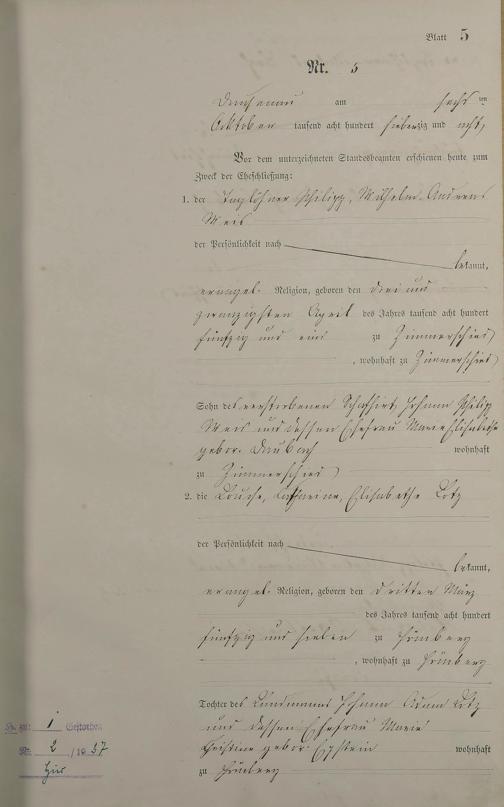 Blatt 5
Nr. 5
Dausenau am sechs ten
Oktober tausend acht hundert siebenzig und acht,
Vor dem unterzeichneten Standesbeamten erschienen heute zum
Zweck der Eheschließung:
1. der Tagelöhner Philipp, Wilhelm Andreas
Meis
der Persönlichkeit nach
bekannt,
evangel. Religion, geboren den drei und
zwanzigsten April des Jahres tausend acht hundert
fünfzig und eins zu Zimmerschied
, wohnhaft zu Zimmerschied
Sohn des verstorbenen Schafhirt, Johann Philipp
Meis und dessen Ehefrau Marie Elisabethe
gebor. Daubach wohnhaft
zu Zimmerschied
2. die Louise, Catharine, Elisabethe Lotz
der Persönlichkeit nach
bekannt,
evangel. Religion, geboren den dritten März
des Jahres tausend acht hundert
fünfzig und sieben zu Hömberg
, wohnhaft zu Hömberg
Tochter des Landmanns Johann Adam Lotz
und dessen Ehefrau Marie
Christine gebor. Epstein wohnhaft
zu Hömberg
zu: 1 Gestorben
Nr. 2 / 1937
hier